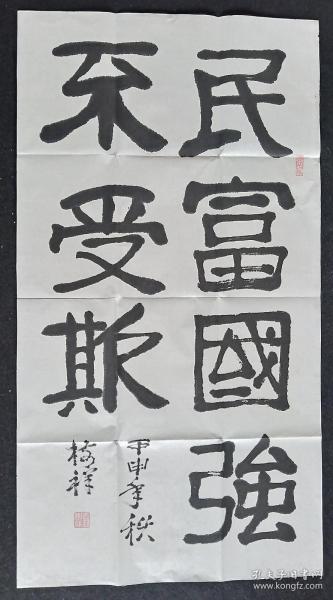 民富國強
不受欺
甲申年秋
祥
孔夫子旧书网
www.kongfz.com